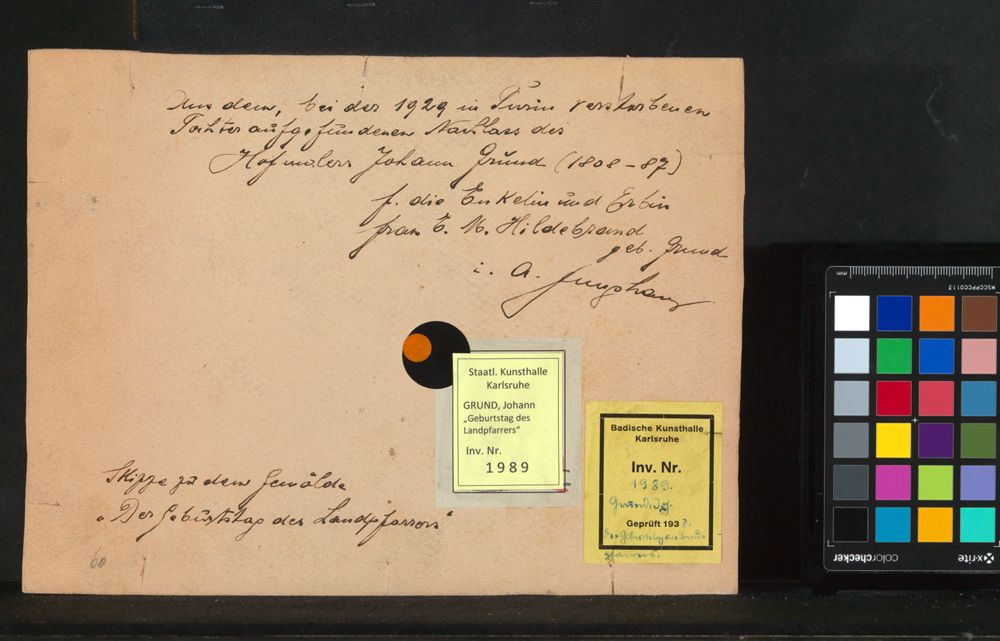 Aus dem, bei der 1929 in Turin verstorbenen
Tochter aufgefundenen Nachlass des
Hofmalers Johann Grund (1808-87)
f. die Enkelin und Erbin
frau E. M. Hildebrand
geb. Grund
i. A.
Staatl. Kunsthalle
Karlsruhe
GRUND, Johann
„Geburtstag des
Landpfarrers“
Inv. Nr.
1989
Badische Kunsthalle
Karlsruhe
Inv. Nr.
1989.
Grund, Joh.
Geprüft 193
Skizze zu dem Gemälde
„Der Geburtstag des Landpfarrers“
60
mm
MSCCPPCC0113
colorchecker
x-rite